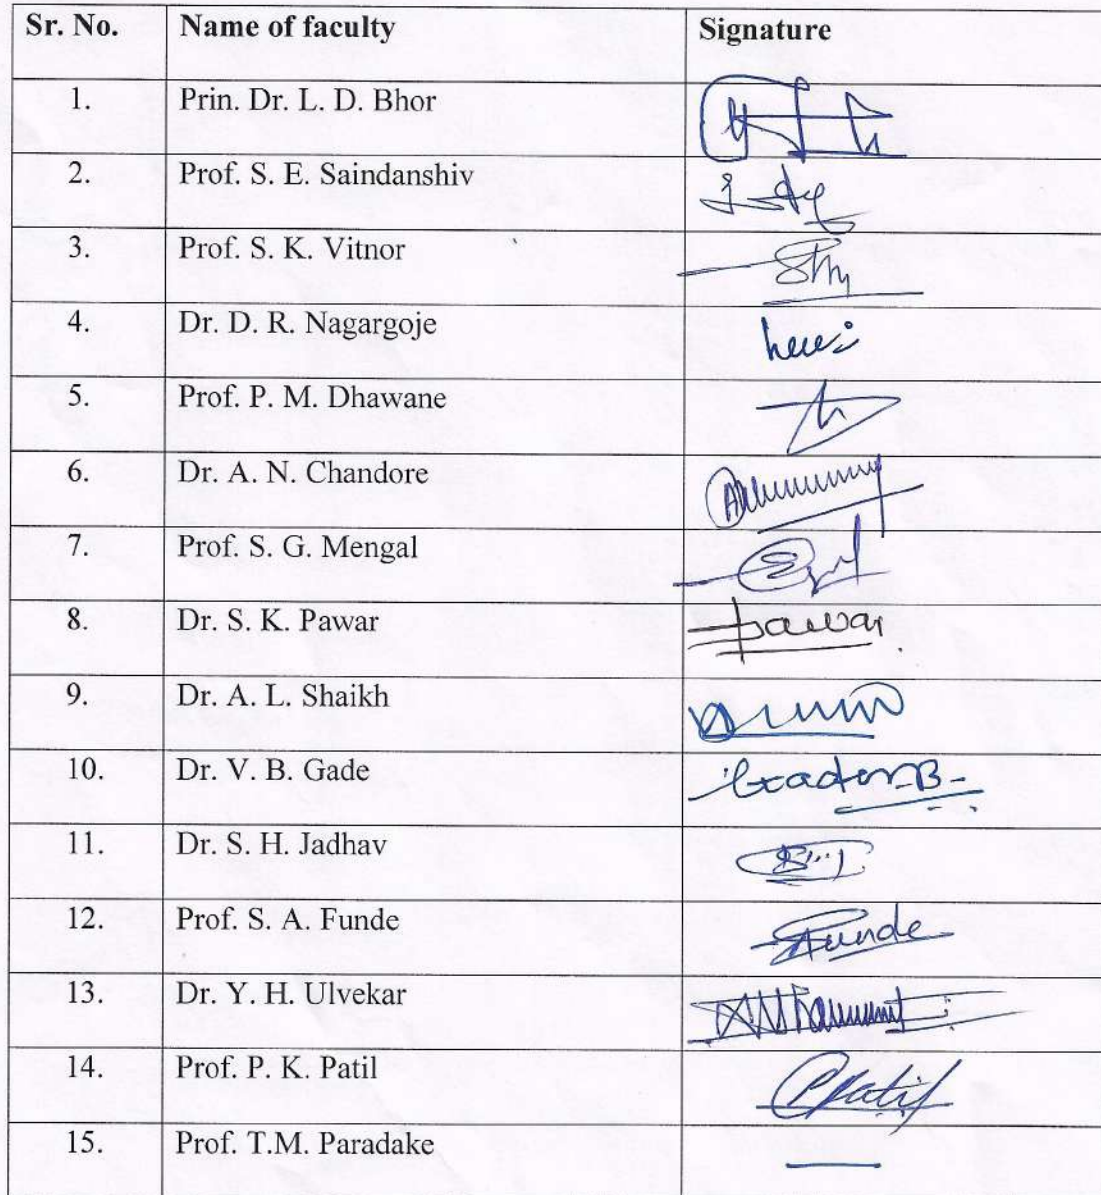 Sr. No. Name of faculty Signature
1. Prin. Dr. L. D. Bhor
2. Prof. S. E. Saindanshiv
3. Prof. S. K. Vitnor
4. Dr. D. R. Nagargoje
5. Prof. P. M. Dhawane
6. Dr. A. N. Chandore
7. Prof. S. G. Mengal
8. Dr. S. K. Pawar Pawar
9. Dr. A. L. Shaikh
10. Dr. V. B. Gade
11. Dr. S. H. Jadhav
12. Prof. S. A. Funde Funde
13. Dr. Y. H. Ulvekar
14. Prof. P. K. Patil PPatil
15. Prof. T.M. Paradake